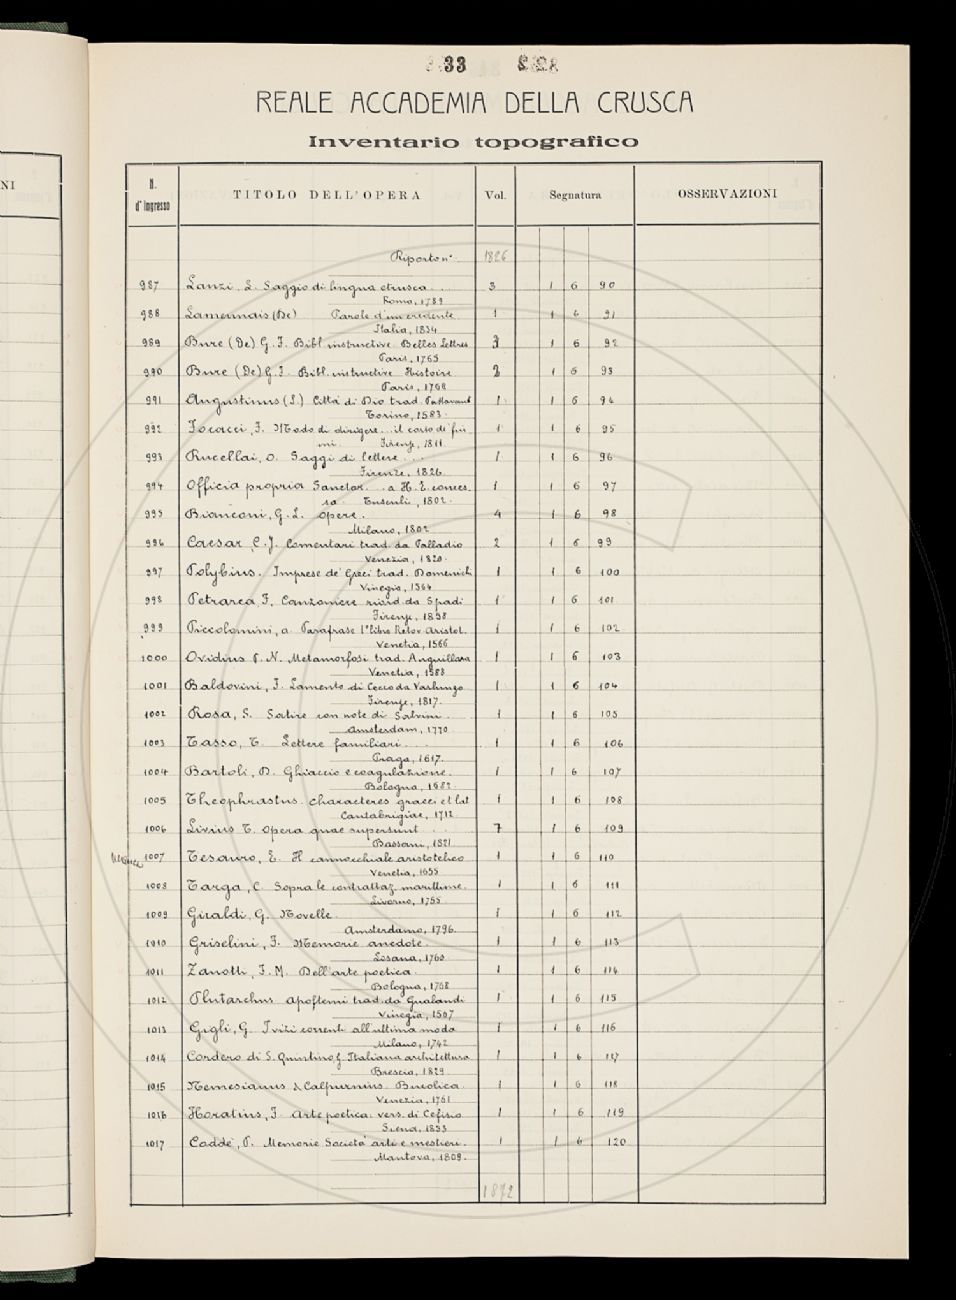 33
REALE ACCADEMIA DELLA CRUSCA
Inventario topografico
NI
N. d'Ingresso TITOLO DELL'OPERA Vol. Segnatura OSSERVAZIONI
Riporto n. 1826
987 Lanzi, L. Saggio di lingua etrusca . . 3 1 6 90
Roma, 1789
988 Lamennais (De) Parole d'un credente 1 1 6 91
Italia, 1834
989 Bure (De) G. F. Bibl. instructive Belles Lettres 3 1 6 92
Paris, 1765
990 Bure (De) G. F. Bibl. instructive Histoire 2 1 6 93
Paris, 1768
991 Augustinus (S.) Città di Dio trad. 1 1 6 94
Torino, 1583.
992 Focacci, F. Modo di dirigere . . il corso de' fiu- 1 1 6 95
mi. Firenze, 1811
993 Rucellai, O. Saggi di lettere . . . 1 1 6 96
Firenze, 1826
994 Officia propria Sanctor. . . a H. E. conces- 1 1 6 97
sa. Tusculi, 1802.
995 Bianconi, G. L. Opere. 4 1 6 98
Milano, 1802
996 Caesar, C. J. Comentari trad. da Palladio 2 1 6 99
Venezia, 1820.
997 Polybius. Imprese de' Greci trad. Domenichi 1 1 6 100
Vinegia, 1564
998 Petrarca, F. Canzoniere riord. da Spadi 1 1 6 101
Firenze, 1898
999 Piccolomini, A. Parafrase 1° libro Retor. Aristot. 1 1 6 102
Venetia, 1566
1000 Ovidius P. N. Metamorfosi trad. Anguillara 1 1 6 103
Venetia, 1588
1001 Baldovini, F. Lamento di Cecco da Varlungo 1 1 6 104
Firenze, 1817.
1002 Rosa, S. Satire con note di Salvini. 1 1 6 105
Amsterdam, 1770
1003 Tasso, T. Lettere familiari. . . . 1 1 6 106
Praga, 1617.
1004 Bartoli, D. Ghiaccio e coagulazione. 1 1 6 107
Bologna, 1682.
1005 Theophrastus. Characteres graeci et lat 1 1 6 108
Cantabrigiae, 1712
1006 Livius T. Opera quae supersunt . . 7 1 6 109
Bassani, 1821
1007 Tesauro, E. Il cannocchiale aristotelico 1 1 6 110
Venetia, 1655
1008 Targa, C. Sopra le contrattaz. marittime. 1 1 6 111
Livorno, 1755
1009 Giraldi, G. Novelle. 1 1 6 112
Amsterdamo, 1796.
1010 Griselini, F. Memorie anedote. 1 1 6 113
Losana, 1760
1011 Zanotti, F. M. Dell'arte poetica. 1 1 6 114
Bologna, 1768
1012 Plutarchus Apoftemi trad. da Gualandi 1 1 6 115
Vinegia, 1567
1013 Gigli, G. I vizi correnti all'ultima moda 1 1 6 116
Milano, 1742
1014 Cordero di S. Quintino G. Italiana architettura 1 1 6 117
Brescia, 1829.
1015 Nemesianus & Calpurnius. Bucolica. 1 1 6 118
Venezia, 1761
1016 Horatius, F. Arte poetica. vers. di Cefisio 1 1 6 119
Siena, 1833
1017 Caddè, P. Memorie Società arti e mestieri. 1 1 6 120
Mantova, 1809.
1872